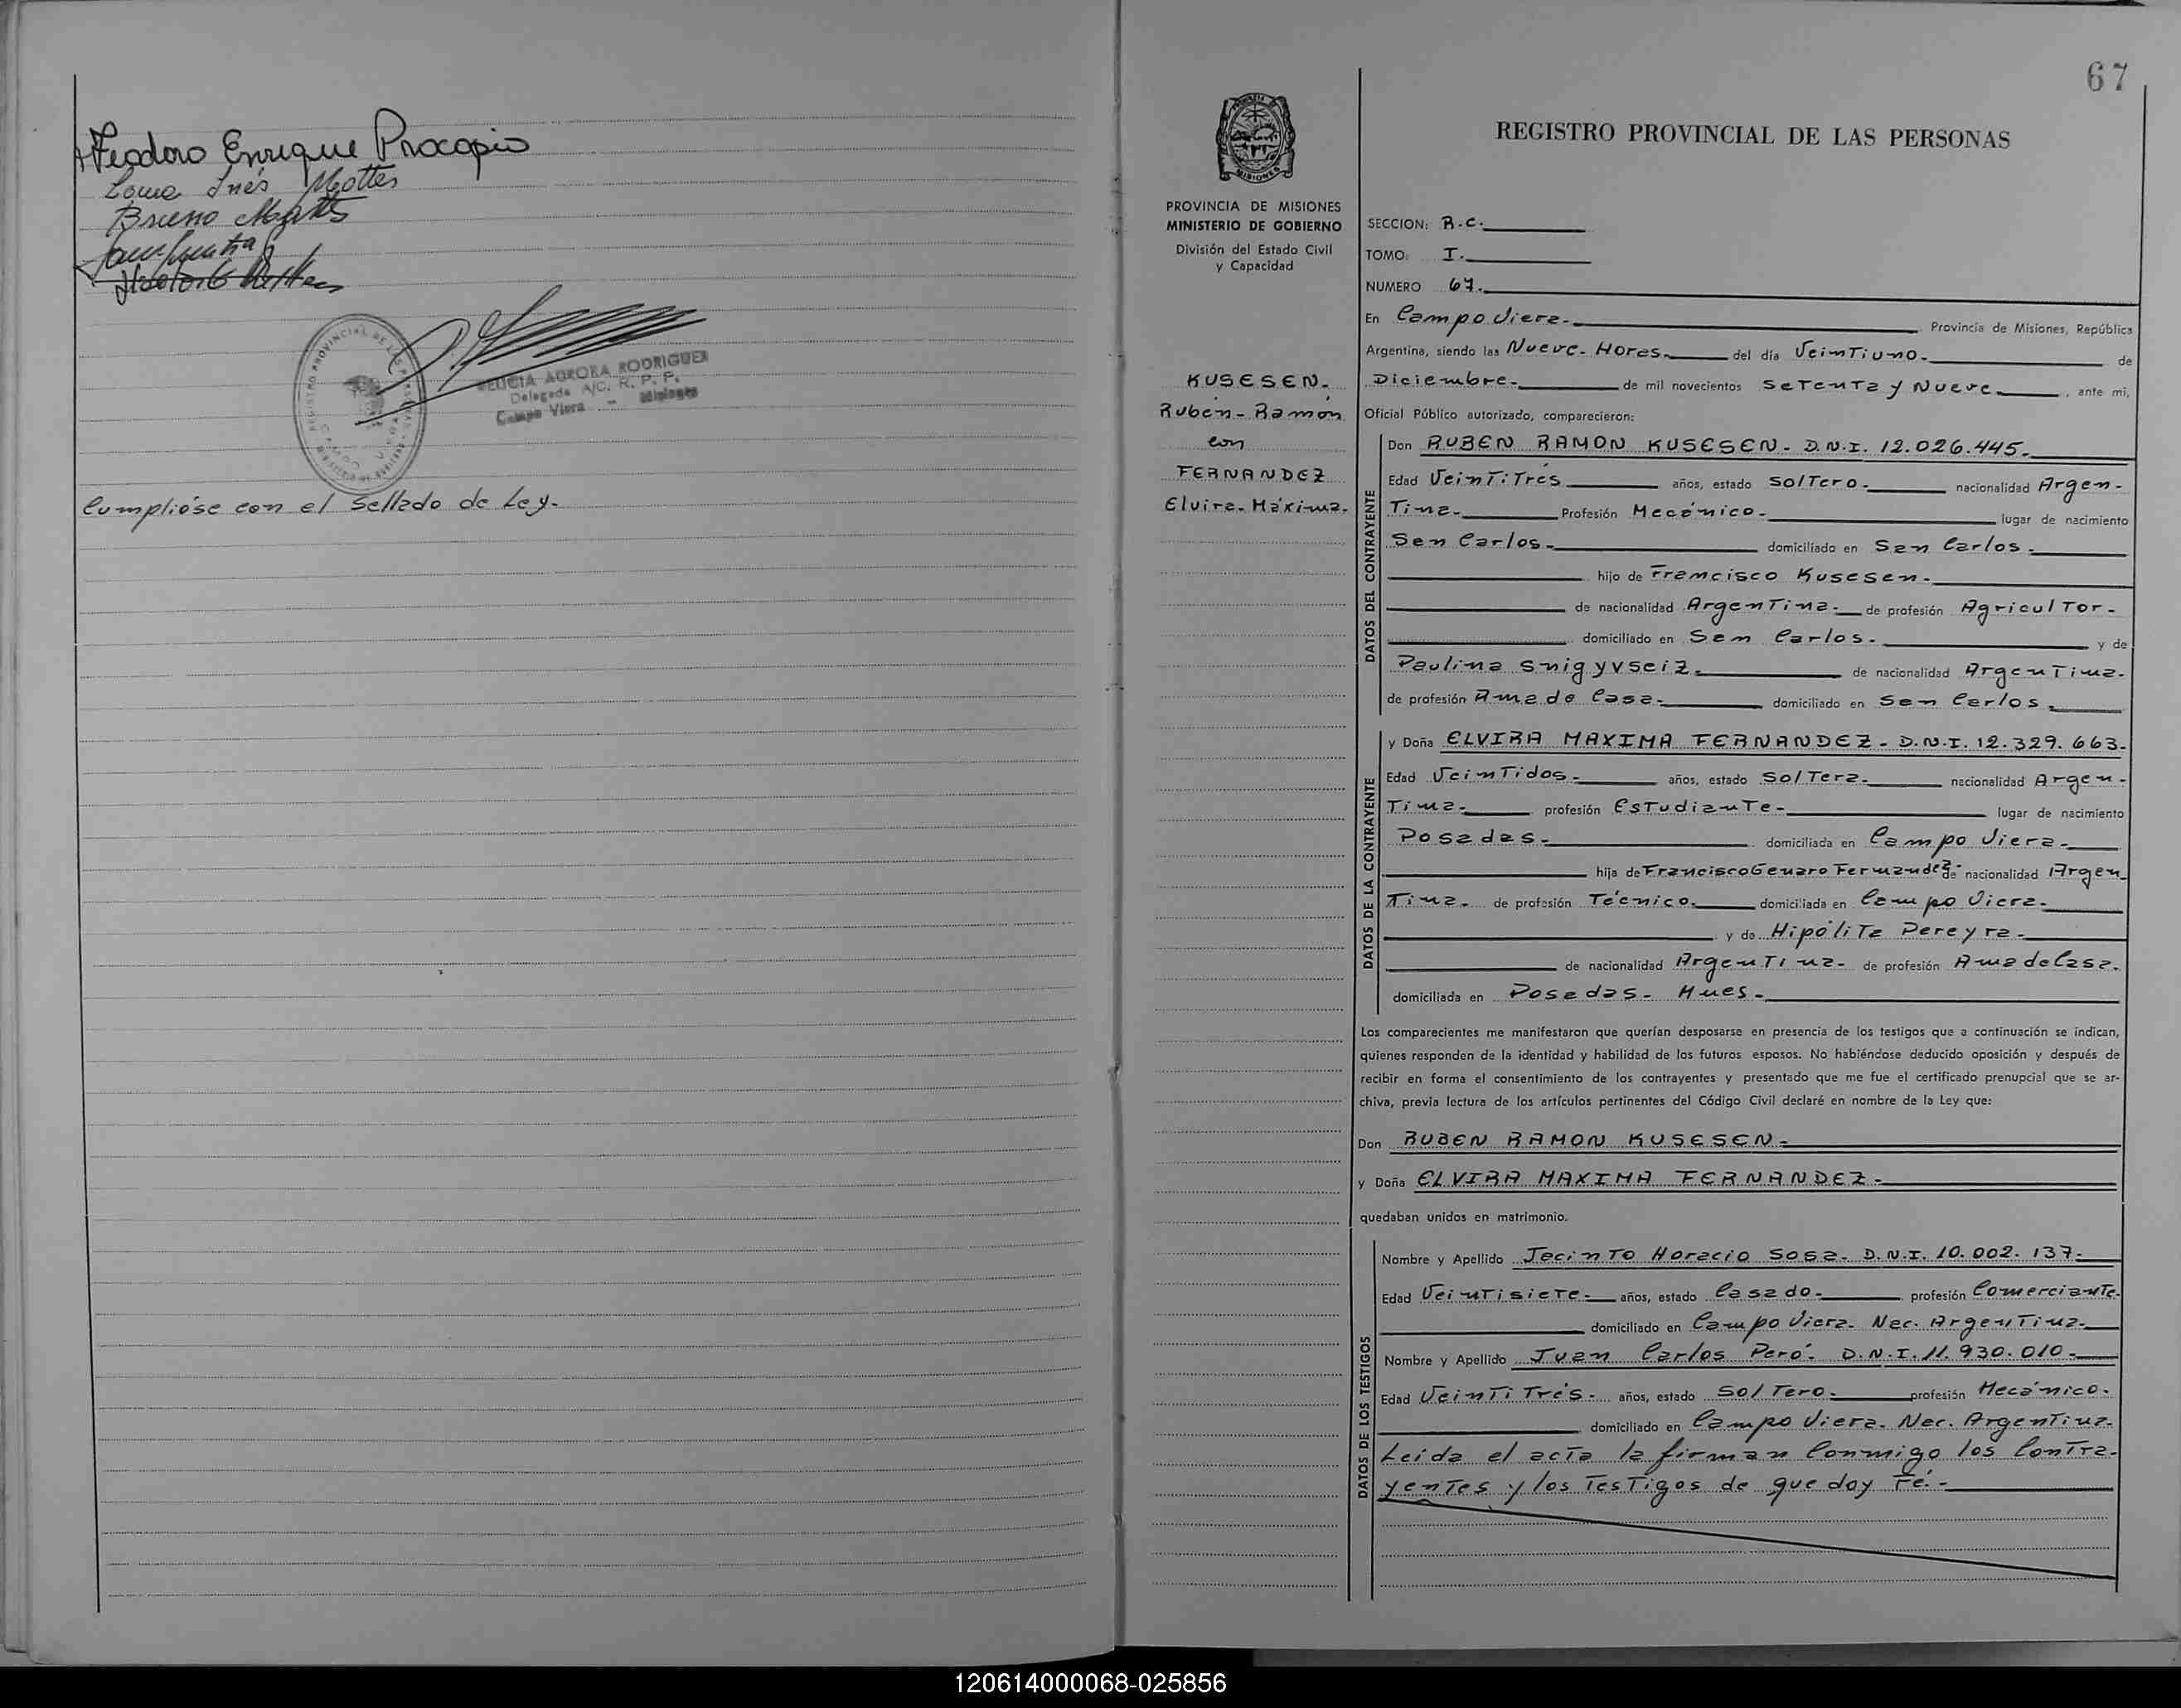 Teodoro Enrique Procopio
Inés Mattes
Bruno Mattes
REGISTRO PROVINCIAL DE LAS PERSONAS
AURORA RODRIGUEZ
Delegada A/C. R. P. P.
Campo Viera - Misiones
Cumplióse con el Sellado de Ley.-
67
PROVINCIA DE MISIONES
MINISTERIO DE GOBIERNO
División del Estado Civil
y Capacidad
KUSESEN.-
Rubén-Ramón
con
FERNANDEZ
Elvira-Máxima.-
REGISTRO PROVINCIAL DE LAS PERSONAS
SECCION: R.C.
TOMO: I.
NUMERO 67.
En Campo Viera.- Provincia de Misiones, República
Argentina, siendo las Nueve-Horas. del día Veintiuno.- de
Diciembre.- de mil novecientos Setenta y Nueve, ante mi,
Oficial Público autorizado, comparecieron:
DATOS DEL CONTRAYENTE
Don RUBEN RAMON KUSESEN.- D.N.I. 12.026.445.
Edad Veintitrés años, estado Soltero.- nacionalidad Argen-
tina.- Profesión Mecánico.- lugar de nacimiento
San Carlos.- domiciliado en San Carlos.
hijo de Francisco Kusesen.-
de nacionalidad Argentina.- de profesión Agricultor.-
domiciliado en San Carlos.- y de
Paulina Snigyvseiz.- de nacionalidad Argentina.-
de profesión Ama de Casa.- domiciliado en San Carlos.
DATOS DE LA CONTRAYENTE
y Doña ELVIRA MAXIMA FERNANDEZ.- D.N.I. 12.329.663.-
Edad Veintidos.- años, estado Soltera.- nacionalidad Argen-
tina.- profesión Estudiante.- lugar de nacimiento
Posadas.- domiciliada en Campo Viera.-
hija de Francisco Genaro Fernandez.- de nacionalidad Argen-
tina.- de profesión Técnico.- domiciliada en Campo Viera.-
y de Hipólita Pereyra.-
de nacionalidad Argentina.- de profesión Ama de Casa.
domiciliada en Posadas.- Mnes.-
Los comparecientes me manifestaron que querían desposarse en presencia de los testigos que a continuación se indican,
quienes responden de la identidad y habilidad de los futuros esposos. No habiéndose deducido oposición y después de
recibir en forma el consentimiento de los contrayentes y presentado que me fue el certificado prenupcial que se ar-
chiva, previa lectura de los artículos pertinentes del Código Civil declaré en nombre de la Ley que:
Don RUBEN RAMON KUSESEN.-
y Doña ELVIRA MAXIMA FERNANDEZ.-
quedaban unidos en matrimonio.
DATOS DE LOS TESTIGOS
Nombre y Apellido Jacinto Horacio Sosa.- D.N.I. 10.002.137.-
Edad Veintisiete.- años, estado Casado.- profesión Comerciante.
domiciliado en Campo Viera.- Nac. Argentina.-
Nombre y Apellido Juan Carlos Peró.- D.N.I. 11.930.010.-
Edad Veintitrés.- años, estado Soltero.- profesión Mecánico.-
domiciliado en Campo Viera.- Nac. Argentina.-
Leída el acta la firman Conmigo los Contra-
yentes y los Testigos de que doy Fé.-
120614000068-025856